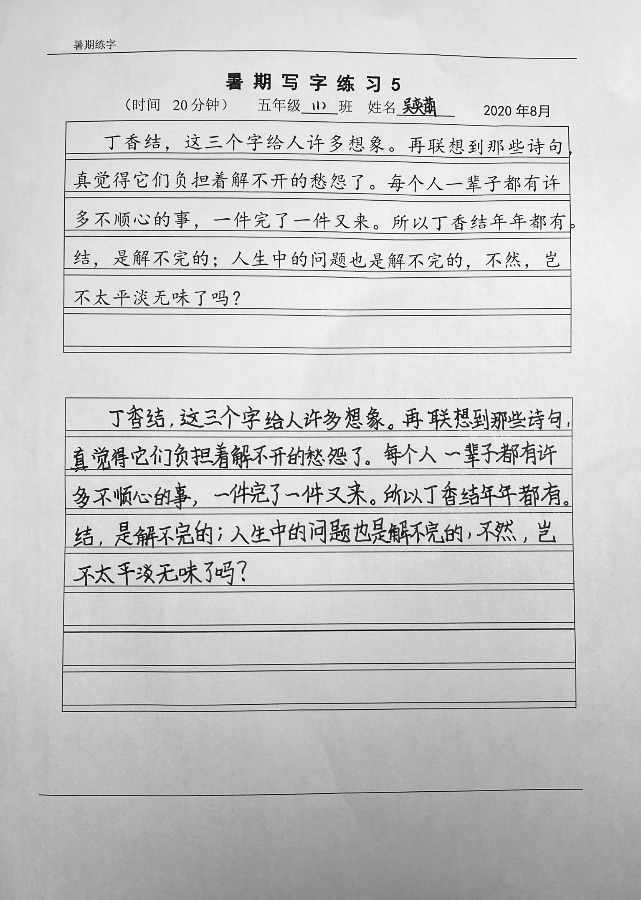 暑期练字
暑期写字练习5
（时间 20分钟） 五年级 (1) 班 姓名 吴 2020年8月
丁香结，这三个字给人许多想象。再联想到那些诗句，
真觉得它们负担着解不开的愁怨了。每个人一辈子都有许
多不顺心的事，一件完了一件又来。所以丁香结年年都有。
结，是解不完的；人生中的问题也是解不完的，不然，岂
不太平淡无味了吗？
丁香结，这三个字给人许多想象。再联想到那些诗句，
真觉得它们负担着解不开的愁怨了。每个人一辈子都有许
多不顺心的事，一件完了一件又来。所以丁香结年年都有。
结，是解不完的；人生中的问题也是解不完的，不然，岂
不太平淡无味了吗？